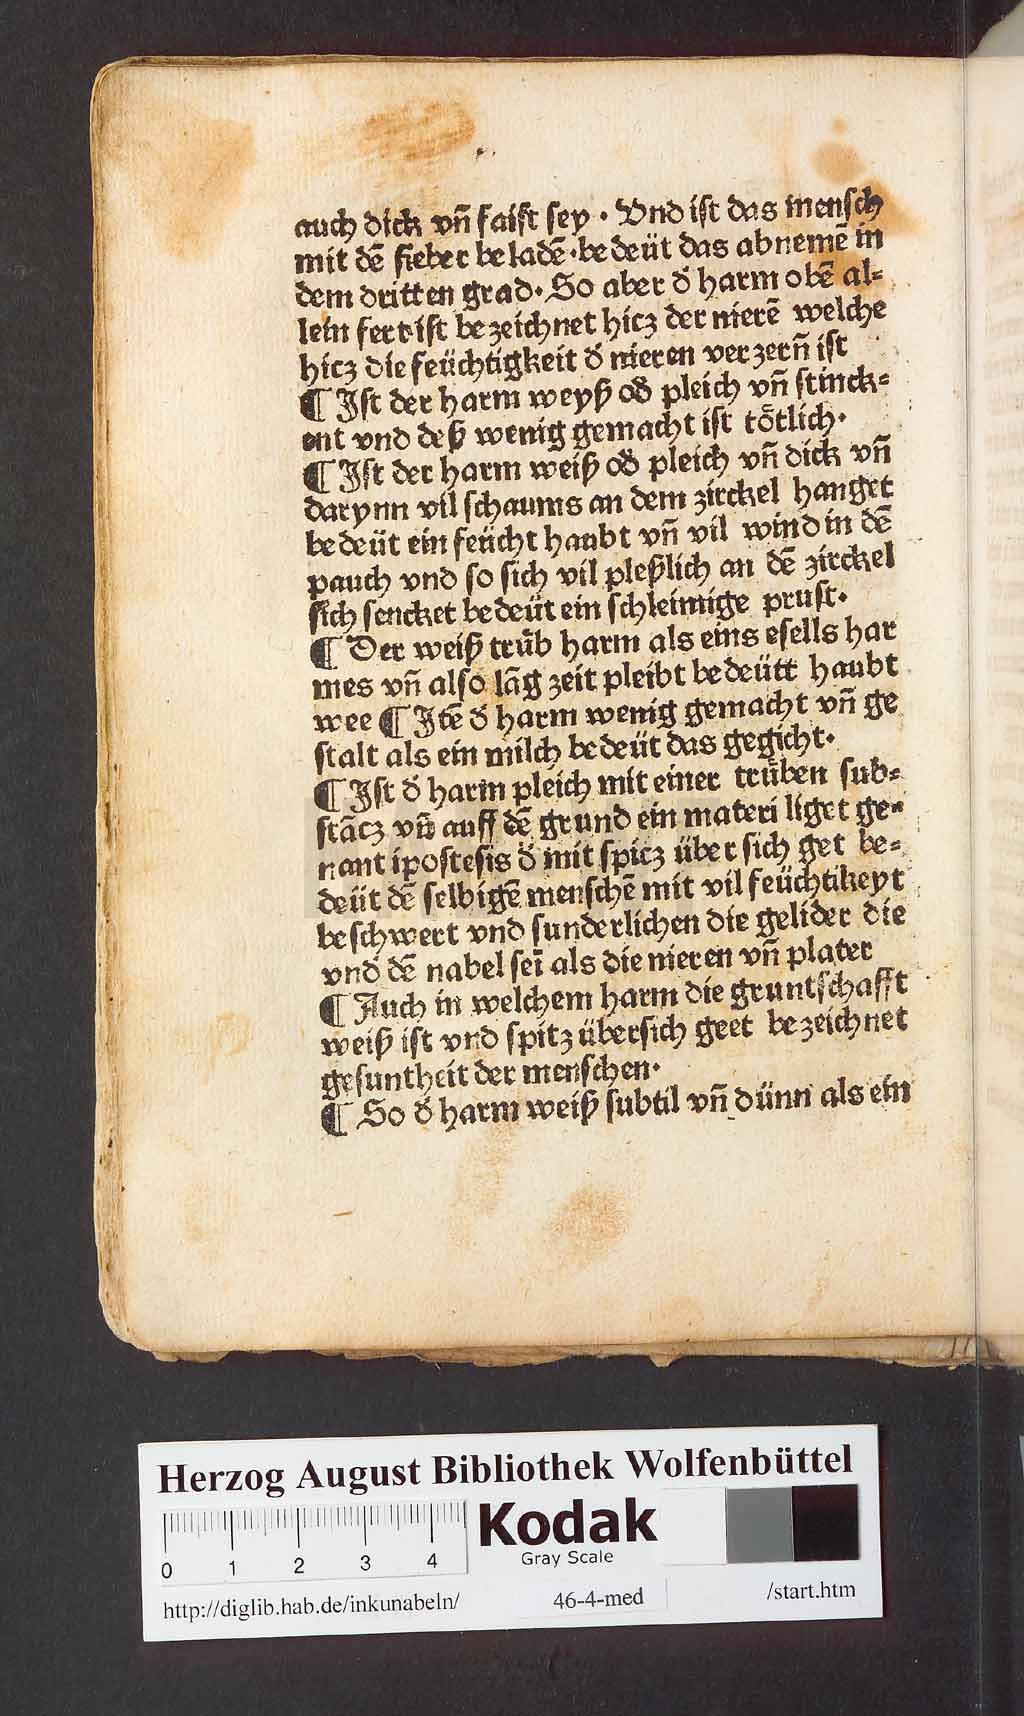 auch dick vñ faist sey · Vnd ist das mensch
mit dē fieber beladē · bedeüt das abnemē in
dem dritten grad · So aber d̄ harm obē al⸗
lein fert ist bezeichnet hicz der nierē welche
hicz die feüchtigkeit d̄ nieren verzerñ ist
¶ Ist der harm weyß od̄ pleich vñ stinck⸗
ent vnd deß wenig gemacht ist toͤtlich ·
¶ Ist der harm weiß od̄ pleich vñ dick vñ
darynn vil schaums an dem zirckel hanget
bedeüt ein feücht haubt vñ vil wind in dē
pauch vnd so sich vil pleßlich an dē zirckel
sich sencket bedeüt ein schleimige prust ·
¶ Der weiß trüb harm als eins esells har
mes vñ also lāg zeit pleibt bedeütt haubt
wee ¶ Itē d̄ harm wenig gemacht vñ ge
stalt als ein milch bedeüt das gegicht ·
¶ Ist d̄ harm pleich mit einer trüben sub⸗
stācz vñ auff dē grund ein materi liget ge⸗
nant ipostesis d̄ mit spicz über sich get be⸗
deüt dē selbigē menschē mit vil feüchtikeyt
beschwert vnd sunderlichen die gelider die
vnd dē nabel seī als die nieren vñ plater
¶ Auch in welchem harm die gruntschafft
weiß ist vnd spitz übersich geet bezeichnet
gesuntheit der menschen ·
¶ So d̄ harm weiß subtil vñ dünn als ein
Herzog August Bibliothek Wolfenbüttel
0 1 2 3 4
Kodak
Gray Scale
http://diglib.hab.de/inkunabeln/ 46-4-med /start.htm